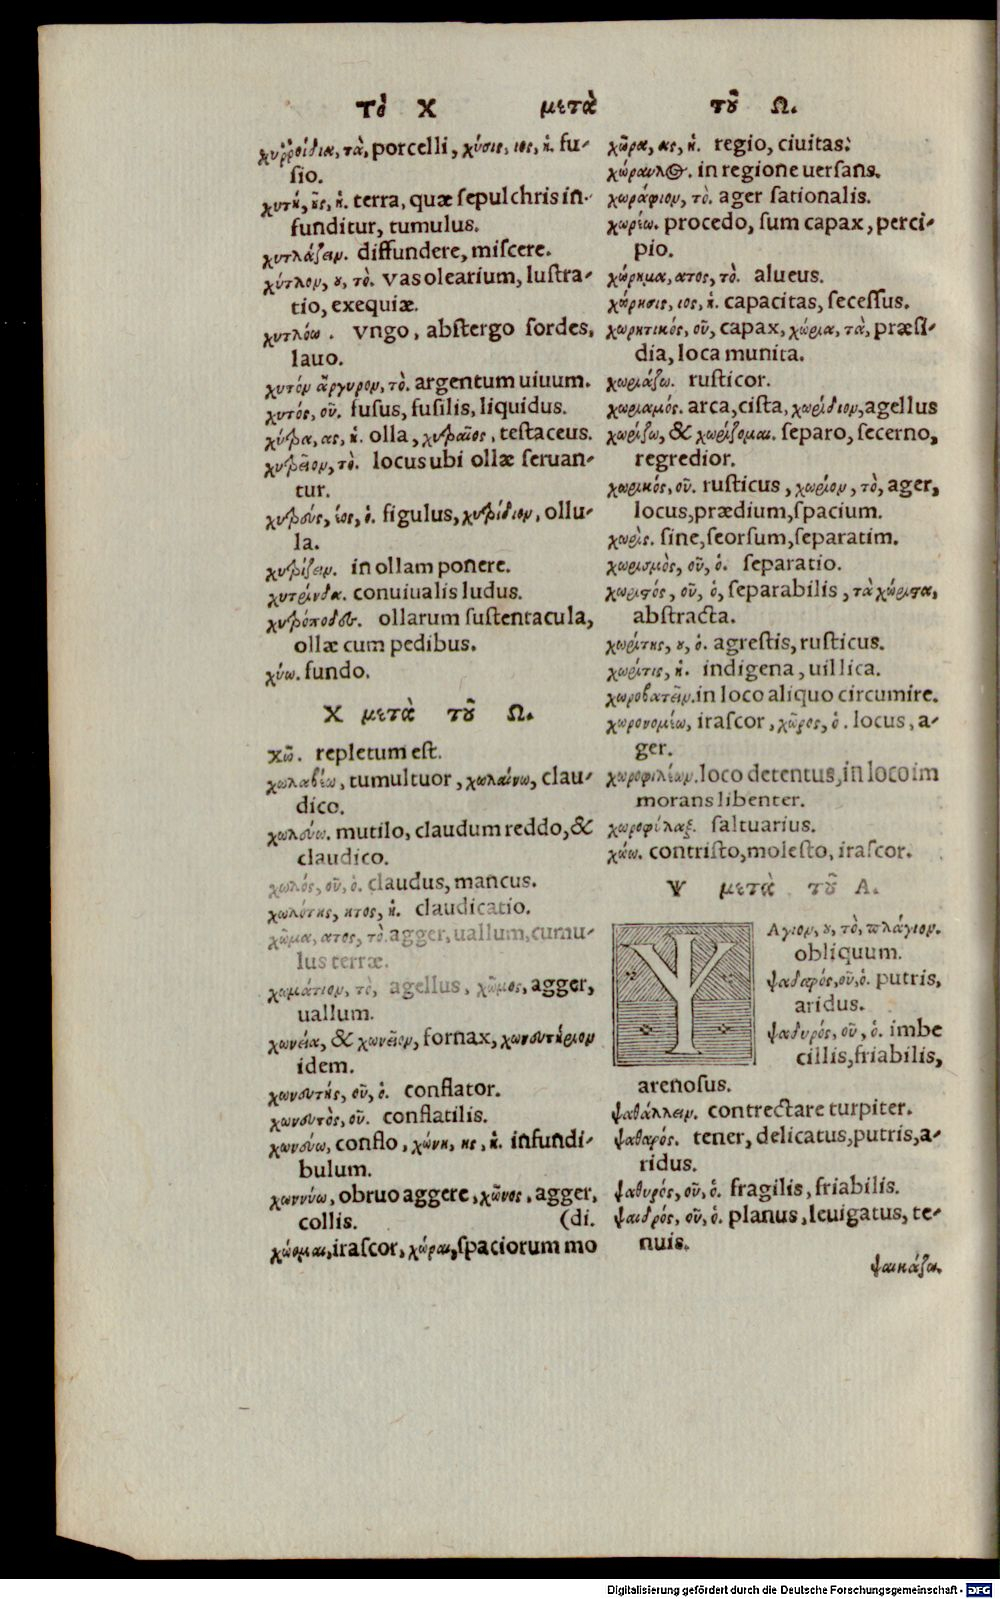 Τὸ Χ μετὰ τοῦ Ω.
χυῤῥοίδια, τὰ, porcelli, χύσις, ιος, ἡ. fu-
sio.
χυτὴ, ῆς, ἡ. terra, quæ sepulchris in-
funditur, tumulus.
χυτλάζειν. diffundere, miscere.
χύτλον, ου, τὸ. vas olearium, lustra-
tio, exequiæ.
χυτλόω. vngo, abstergo sordes,
lauo.
χυτὸν ἄργυρον, τὸ. argentum uiuum.
χυτός, οῦ. fusus, fusilis, liquidus.
χύτρα, ας, ἡ. olla, χυτραῖος, testaceus.
χυτρεῖον, τὸ. locus ubi ollæ seruan-
tur.
χυτρεύς, έος, ὁ. figulus, χυτρίδιον, ollu-
la.
χυτρίζειν. in ollam ponere.
χυτρίνδα. conuiualis ludus.
χυτρόποδες. ollarum sustentacula,
ollæ cum pedibus.
χύω. fundo.
Χ μετὰ τοῦ Ω.
χῶ. repletum est.
χωλαβέω, tumultuor, χωλαίνω, clau-
dico.
χωλεύω. mutilo, claudum reddo, &
claudico.
χωλός, οῦ, ὁ. claudus, mancus.
χωλότης, ητος, ἡ. claudicatio.
χῶμα, ατος, τὸ. agger, uallum, cumu-
lus terræ.
χωμάτιον, τὸ, agellus, χῶμος, agger,
uallum.
χωνεία, & χωνεῖον, fornax, χωνευτήριον
idem.
χωνευτής, οῦ, ὁ. conflator.
χωνευτὸς, οῦ. conflatilis.
χωνεύω, conflo, χώνη, ης, ἡ. infundi-
bulum.
χωννύω, obruo aggere, χῶνος, agger,
collis. (di.
χώομαι, irascor, χώραι, spaciorum mo
χῶρα, ας, ἡ. regio, ciuitas:
χώραυλος. in regione uersans.
χωράφιον, τὸ. ager sationalis.
χωρέω. procedo, sum capax, perci-
pio.
χώρημα, ατος, τὸ. alueus.
χώρησις, ιος, ἡ. capacitas, secessus.
χωρητικός, οῦ, capax, χώρια, τὰ, præsi-
dia, loca munita.
χωριάζω. rusticor.
χωριαμός. arca, cista, χωρίδιον, agellus
χωρίζω, & χωρίζομαι. separo, secerno,
regredior.
χωρικός, οῦ. rusticus, χωρίον, τὸ, ager,
locus, prædium, spacium.
χωρὶς. sine, seorsum, separatim.
χωρισμὸς, οῦ, ὁ. separatio.
χωριστός, οῦ, ὁ, separabilis, τὰ χώριστα,
abstracta.
χωρίτης, ου, ὁ. agrestis, rusticus.
χωρίτις, ἡ. indigena, uillica.
χωροβατεῖν. in loco aliquo circumire.
χωρονομέω, irascor, χῶρος, ὁ. locus, a-
ger.
χωροφιλέων. loco detentus, in loco im
morans libenter.
χωροφύλαξ. saltuarius.
χώω. contristo, molesto, irascor.
Ψ μετὰ τοῦ Α.
ΨΑγιον, ου, τὸ, πλάγιον.
obliquum.
ψαδαρός, οῦ, ὁ. putris,
aridus.
ψαδυρός, οῦ, ὁ. imbe
cillis, friabilis,
arenosus.
ψαθάλλειν. contrectare turpiter.
ψαθαρός. tener, delicatus, putris, a-
ridus.
ψαθυρός, οῦ, ὁ. fragilis, friabilis.
ψαιδρός, οῦ, ὁ. planus, leuigatus, te-
nuis.
ψαικάζω.
Digitalisierung gefördert durch die Deutsche Forschungsgemeinschaft - DFG